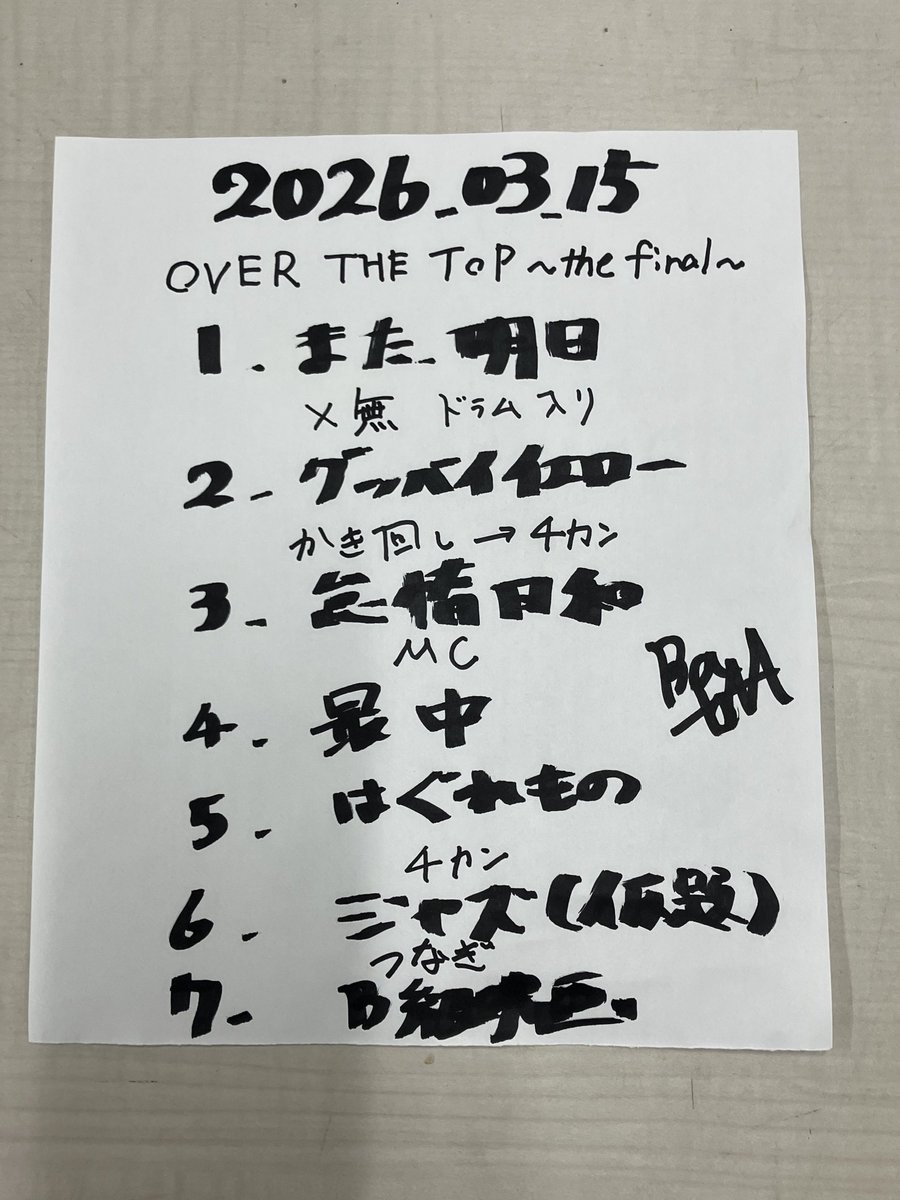 2026_03_15
OVER THE TOP ~the final~
1. また明日
×無 ドラム入り
2. グッバイイエロー
かき回し→4カン
3. 無情日和
MC
4. 最中
5. はぐれもの
4カン
6. ジャズ(仮題)
つなぎ
7. B